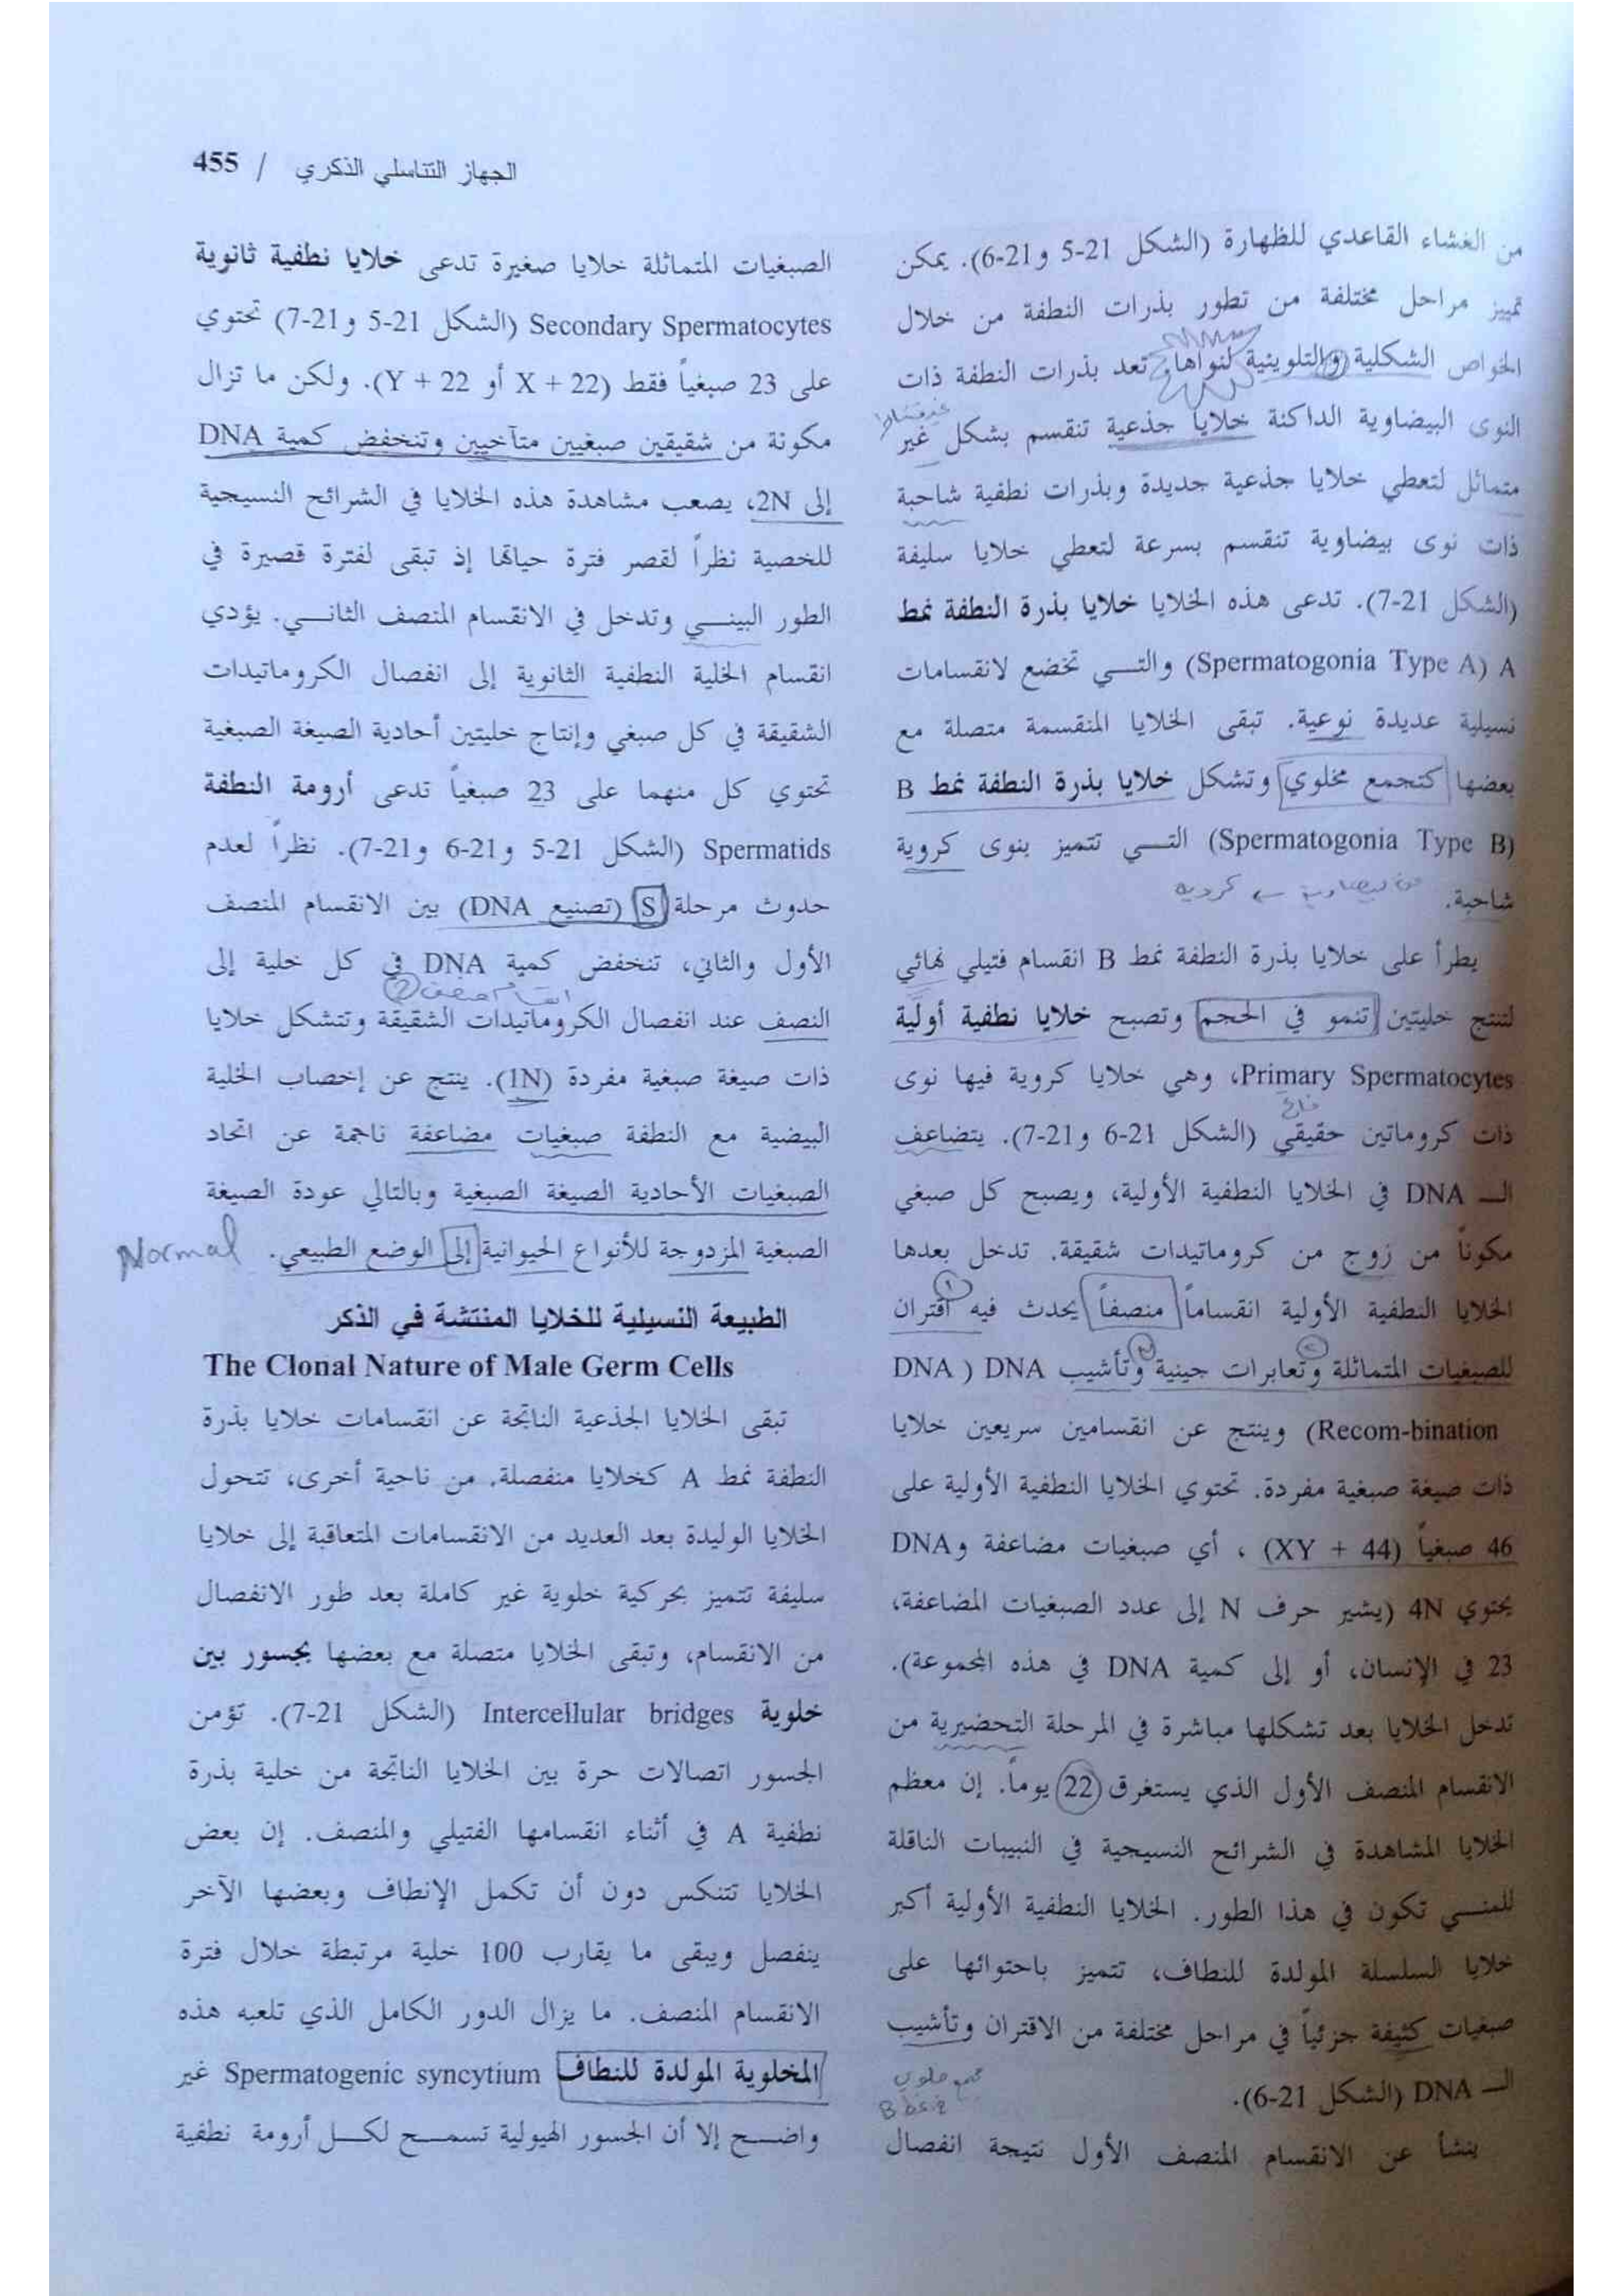 الجهاز التناسلي الذكري / 455
من الغشاء القاعدي للظهارة (الشكل 21-5 و21-6). يمكن
تمييز مراحل مختلفة من تطور بذرات النطفة من خلال
الخواص الشكلية والتلوينية لنواها. تعد بذرات النطفة ذات
النوى البيضاوية الداكنة خلايا جذعية تنقسم بشكل غير
متماثل لتعطي خلايا جذعية جديدة وبذرات نطفية شاحبة
ذات نوى بيضاوية تنقسم بسرعة لتعطي خلايا سليفة
(الشكل 21-7). تدعى هذه الخلايا خلايا بذرة النطفة نمط
A (Spermatogonia Type A) والتي تخضع لانقسامات
نسيلية عديدة نوعية. تبقى الخلايا المنقسمة متصلة مع
بعضها كتجمع مخلوي وتشكل خلايا بذرة النطفة نمط B
(Spermatogonia Type B) التي تتميز بنوى كروية
شاحبة.
بيضاوية كروية
يطرأ على خلايا بذرة النطفة نمط B انقسام فتيلي نهائي
لتنتج خليتين تنمو في الحجم وتصبح خلايا نطفية أولية
Primary Spermatocytes، وهي خلايا كروية فيها نوى
فاتح
ذات كروماتين حقيقي (الشكل 21-6 و21-7). يتضاعف
الـ DNA في الخلايا النطفية الأولية، ويصبح كل صبغي
مكوناً من زوج من كروماتيدات شقيقة. تدخل بعدها
الخلايا النطفية الأولية انقساماً منصفاً يحدث فيه اقتران
للصبغيات المتماثلة وتعابرات جينية وتأشيب DNA ( DNA
Recom-bination) وينتج عن انقسامين سريعين خلايا
ذات صيغة صبغية مفردة. تحتوي الخلايا النطفية الأولية على
46 صبغياً (44 + XY) ، أي صبغيات مضاعفة وDNA
يحتوي 4N (يشير حرف N إلى عدد الصبغيات المضاعفة،
23 في الإنسان، أو إلى كمية DNA في هذه المجموعة).
تدخل الخلايا بعد تشكلها مباشرة في المرحلة التحضيرية من
الانقسام المنصف الأول الذي يستغرق 22 يوماً. إن معظم
الخلايا المشاهدة في الشرائح النسيجية في النبيبات الناقلة
للمني تكون في هذا الطور. الخلايا النطفية الأولية أكبر
خلايا السلسلة المولدة للنطاف، تتميز باحتوائها على
صبغيات كثيفة جزئياً في مراحل مختلفة من الاقتران وتأشيب
الـ DNA (الشكل 21-6).
ينشأ عن الانقسام المنصف الأول نتيجة انفصال
الصبغيات المتماثلة خلايا صغيرة تدعى خلايا نطفية ثانوية
Secondary Spermatocytes (الشكل 21-5 و21-7) تحتوي
على 23 صبغياً فقط (22 + X أو 22 + Y). ولكن ما تزال
مكونة من شقيقين صبغيين متآخيين وتنخفض كمية DNA
إلى 2N، يصعب مشاهدة هذه الخلايا في الشرائح النسيجية
للخصية نظراً لقصر فترة حياتها إذ تبقى لفترة قصيرة في
الطور البيني وتدخل في الانقسام المنصف الثاني. يؤدي
انقسام الخلية النطفية الثانوية إلى انفصال الكروماتيدات
الشقيقة في كل صبغي وإنتاج خليتين أحادية الصيغة الصبغية
تحتوي كل منهما على 23 صبغياً تدعى أرومة النطفة
Spermatids (الشكل 21-5 و21-6 و21-7). نظراً لعدم
حدوث مرحلة S (تصنيع DNA) بين الانقسام المنصف
الأول والثاني، تنخفض كمية DNA في كل خلية إلى
انقسام منصف 2
النصف عند انفصال الكروماتيدات الشقيقة وتتشكل خلايا
ذات صيغة صبغية مفردة (1N). ينتج عن إخصاب الخلية
البيضية مع النطفة صبغيات مضاعفة ناجمة عن اتحاد
الصبغيات الأحادية الصيغة الصبغية وبالتالي عودة الصيغة
الصبغية المزدوجة للأنواع الحيوانية إلى الوضع الطبيعي.
Normal
الطبيعة النسيلية للخلايا المنتشة في الذكر
The Clonal Nature of Male Germ Cells
تبقى الخلايا الجذعية الناتجة عن انقسامات خلايا بذرة
النطفة نمط A كخلايا منفصلة. من ناحية أخرى، تتحول
الخلايا الوليدة بعد العديد من الانقسامات المتعاقبة إلى خلايا
سليفة تتميز بحركية خلوية غير كاملة بعد طور الانفصال
من الانقسام، وتبقى الخلايا متصلة مع بعضها بجسور بين
خلوية Intercellular bridges (الشكل 21-7). تؤمن
الجسور اتصالات حرة بين الخلايا الناتجة من خلية بذرة
نطفية A في أثناء انقسامها الفتيلي والمنصف. إن بعض
الخلايا تتنكس دون أن تكمل الإنطاف وبعضها الآخر
ينفصل ويبقى ما يقارب 100 خلية مرتبطة خلال فترة
الانقسام المنصف. ما يزال الدور الكامل الذي تلعبه هذه
المخلوية المولدة للنطاف Spermatogenic syncytium غير
واضح إلا أن الجسور الهيولية تسمح لكل أرومة نطفية